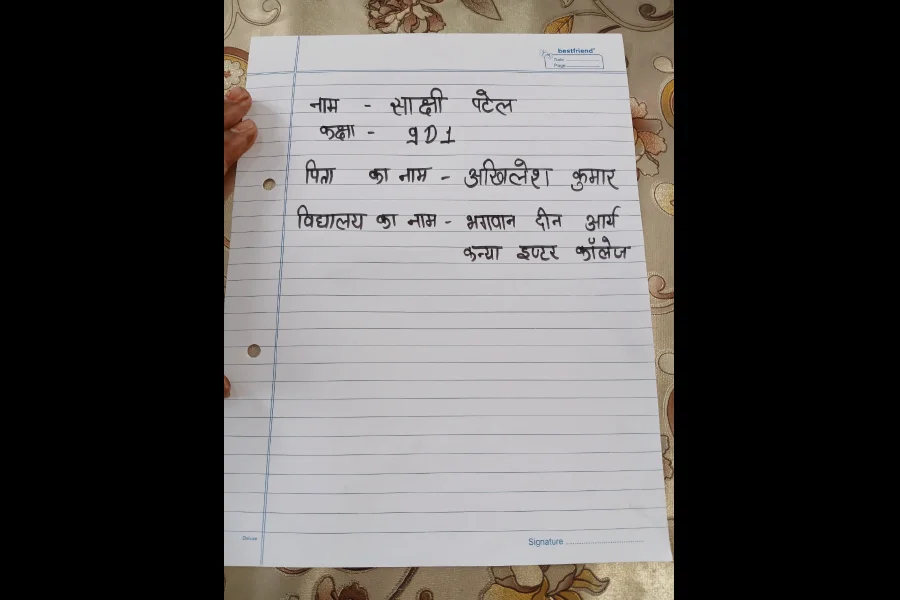 bestfriend
Date
Page
नाम - साक्षी पटेल
कक्षा - 9D1
पिता का नाम - अखिलेश कुमार
विद्यालय का नाम - भगवान दीन आर्य
कन्या इण्टर कॉलेज
Deluxe
Signature